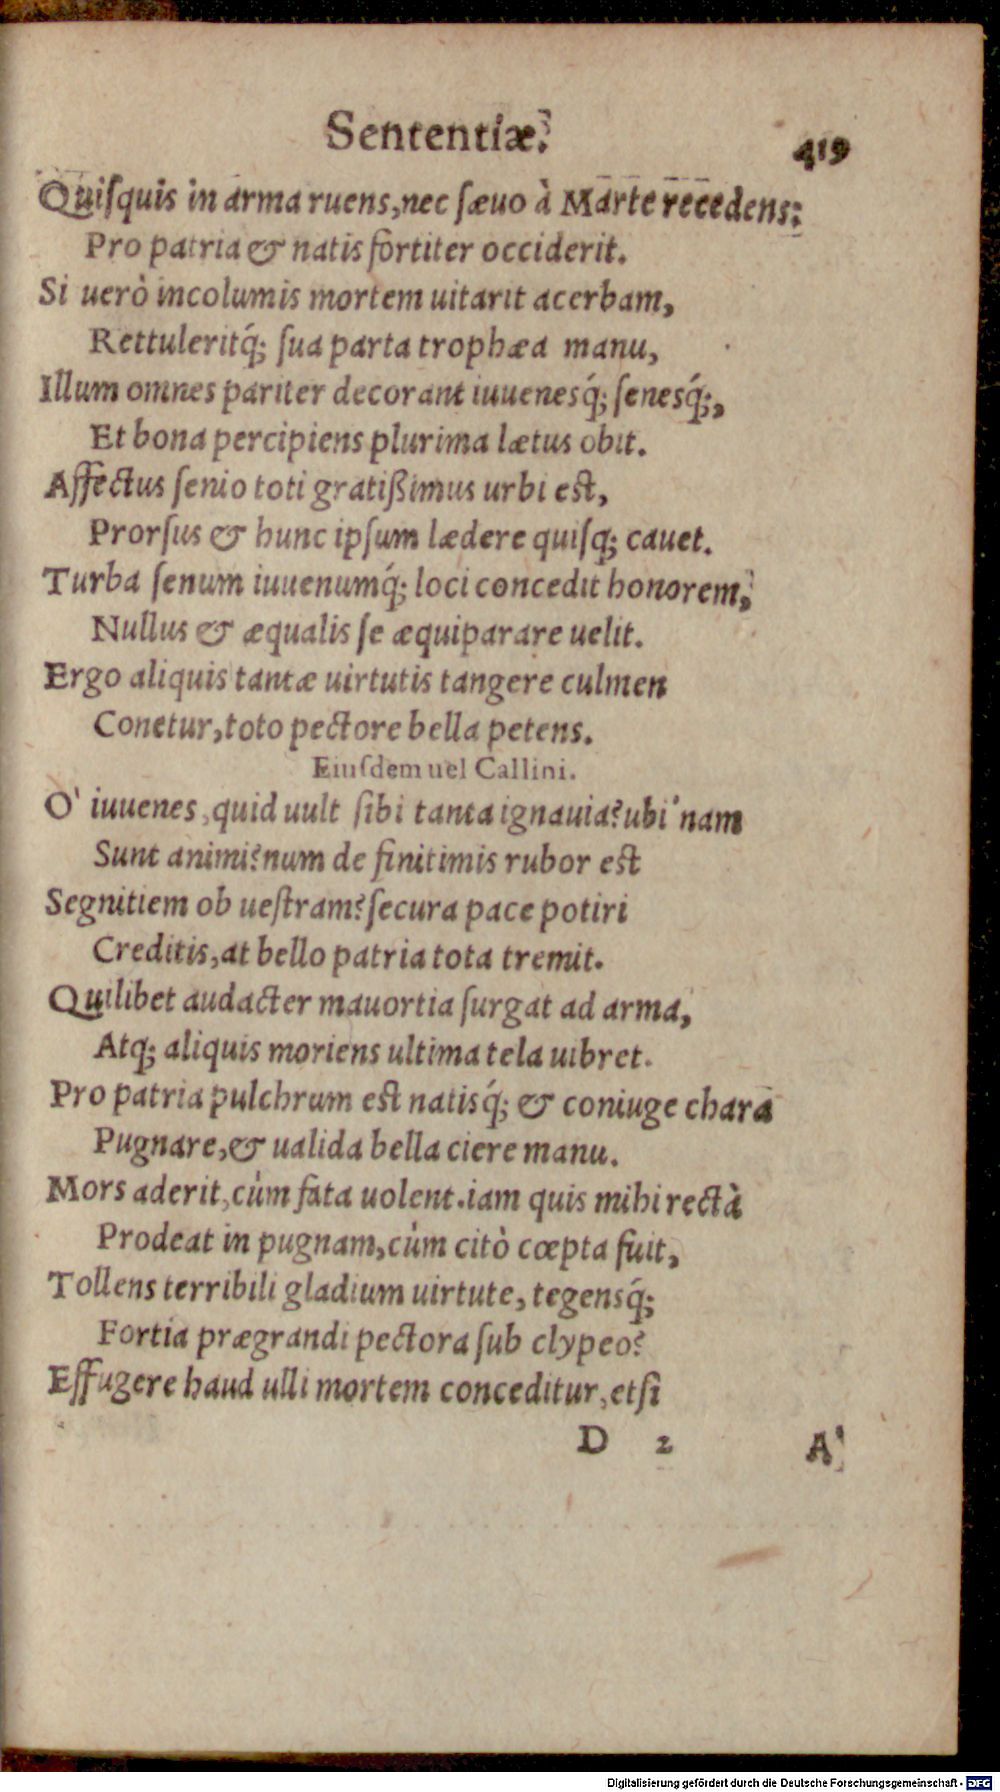 Sententiæ. 419
Quiſquis in arma ruens, nec ſæuo à Marte recedens:
Pro patria & natis fortiter occiderit.
Si uerò incolumis mortem uitarit acerbam,
Rettuleritq́; ſua parta trophæa manu,
Illum omnes pariter decorant iuuenesq́; ſenesq́;,
Et bona percipiens plurima lætus obit.
Affectus ſenio toti gratißimus urbi eſt,
Prorſus & hunc ipſum lædere quiſq; cauet.
Turba ſenum iuuenumq́; loci concedit honorem,
Nullus & æqualis ſe æquiparare uelit.
Ergo aliquis tantæ uirtutis tangere culmen
Conetur, toto pectore bella petens.
Eiuſdem uel Callini.
O' iuuenes, quid uult ſibi tanta ignauia? ubi'nam
Sunt animi? num de finitimis rubor eſt
Segnitiem ob ueſtram? ſecura pace potiri
Creditis, at bello patria tota tremit.
Quilibet audacter mauortia ſurgat ad arma,
Atq; aliquis moriens ultima tela uibret.
Pro patria pulchrum eſt natisq́; & coniuge chara
Pugnare, & ualida bella ciere manu.
Mors aderit, cùm fata uolent. iam quis mihi rectà
Prodeat in pugnam, cùm citò cœpta fuit,
Tollens terribili gladium uirtute, tegensq́;
Fortia prægrandi pectora ſub clypeo?
Effugere haud ulli mortem conceditur, etſi
D 2 A'
Digitalisierung gefördert durch die Deutsche Forschungsgemeinschaft - DFG